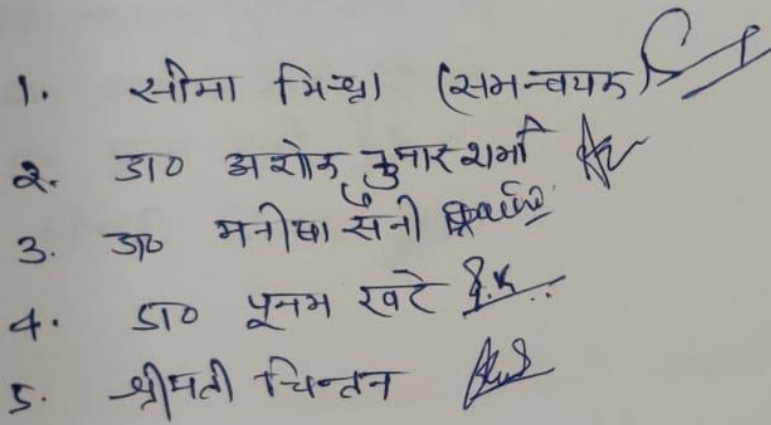 1. सीमा मिश्रा (समन्वयक)
2. डा० अशोक कुमार शर्मा
3. डा० मनीषा सैनी
4. डा० पूनम खरे
5. श्रीमती चिन्तन